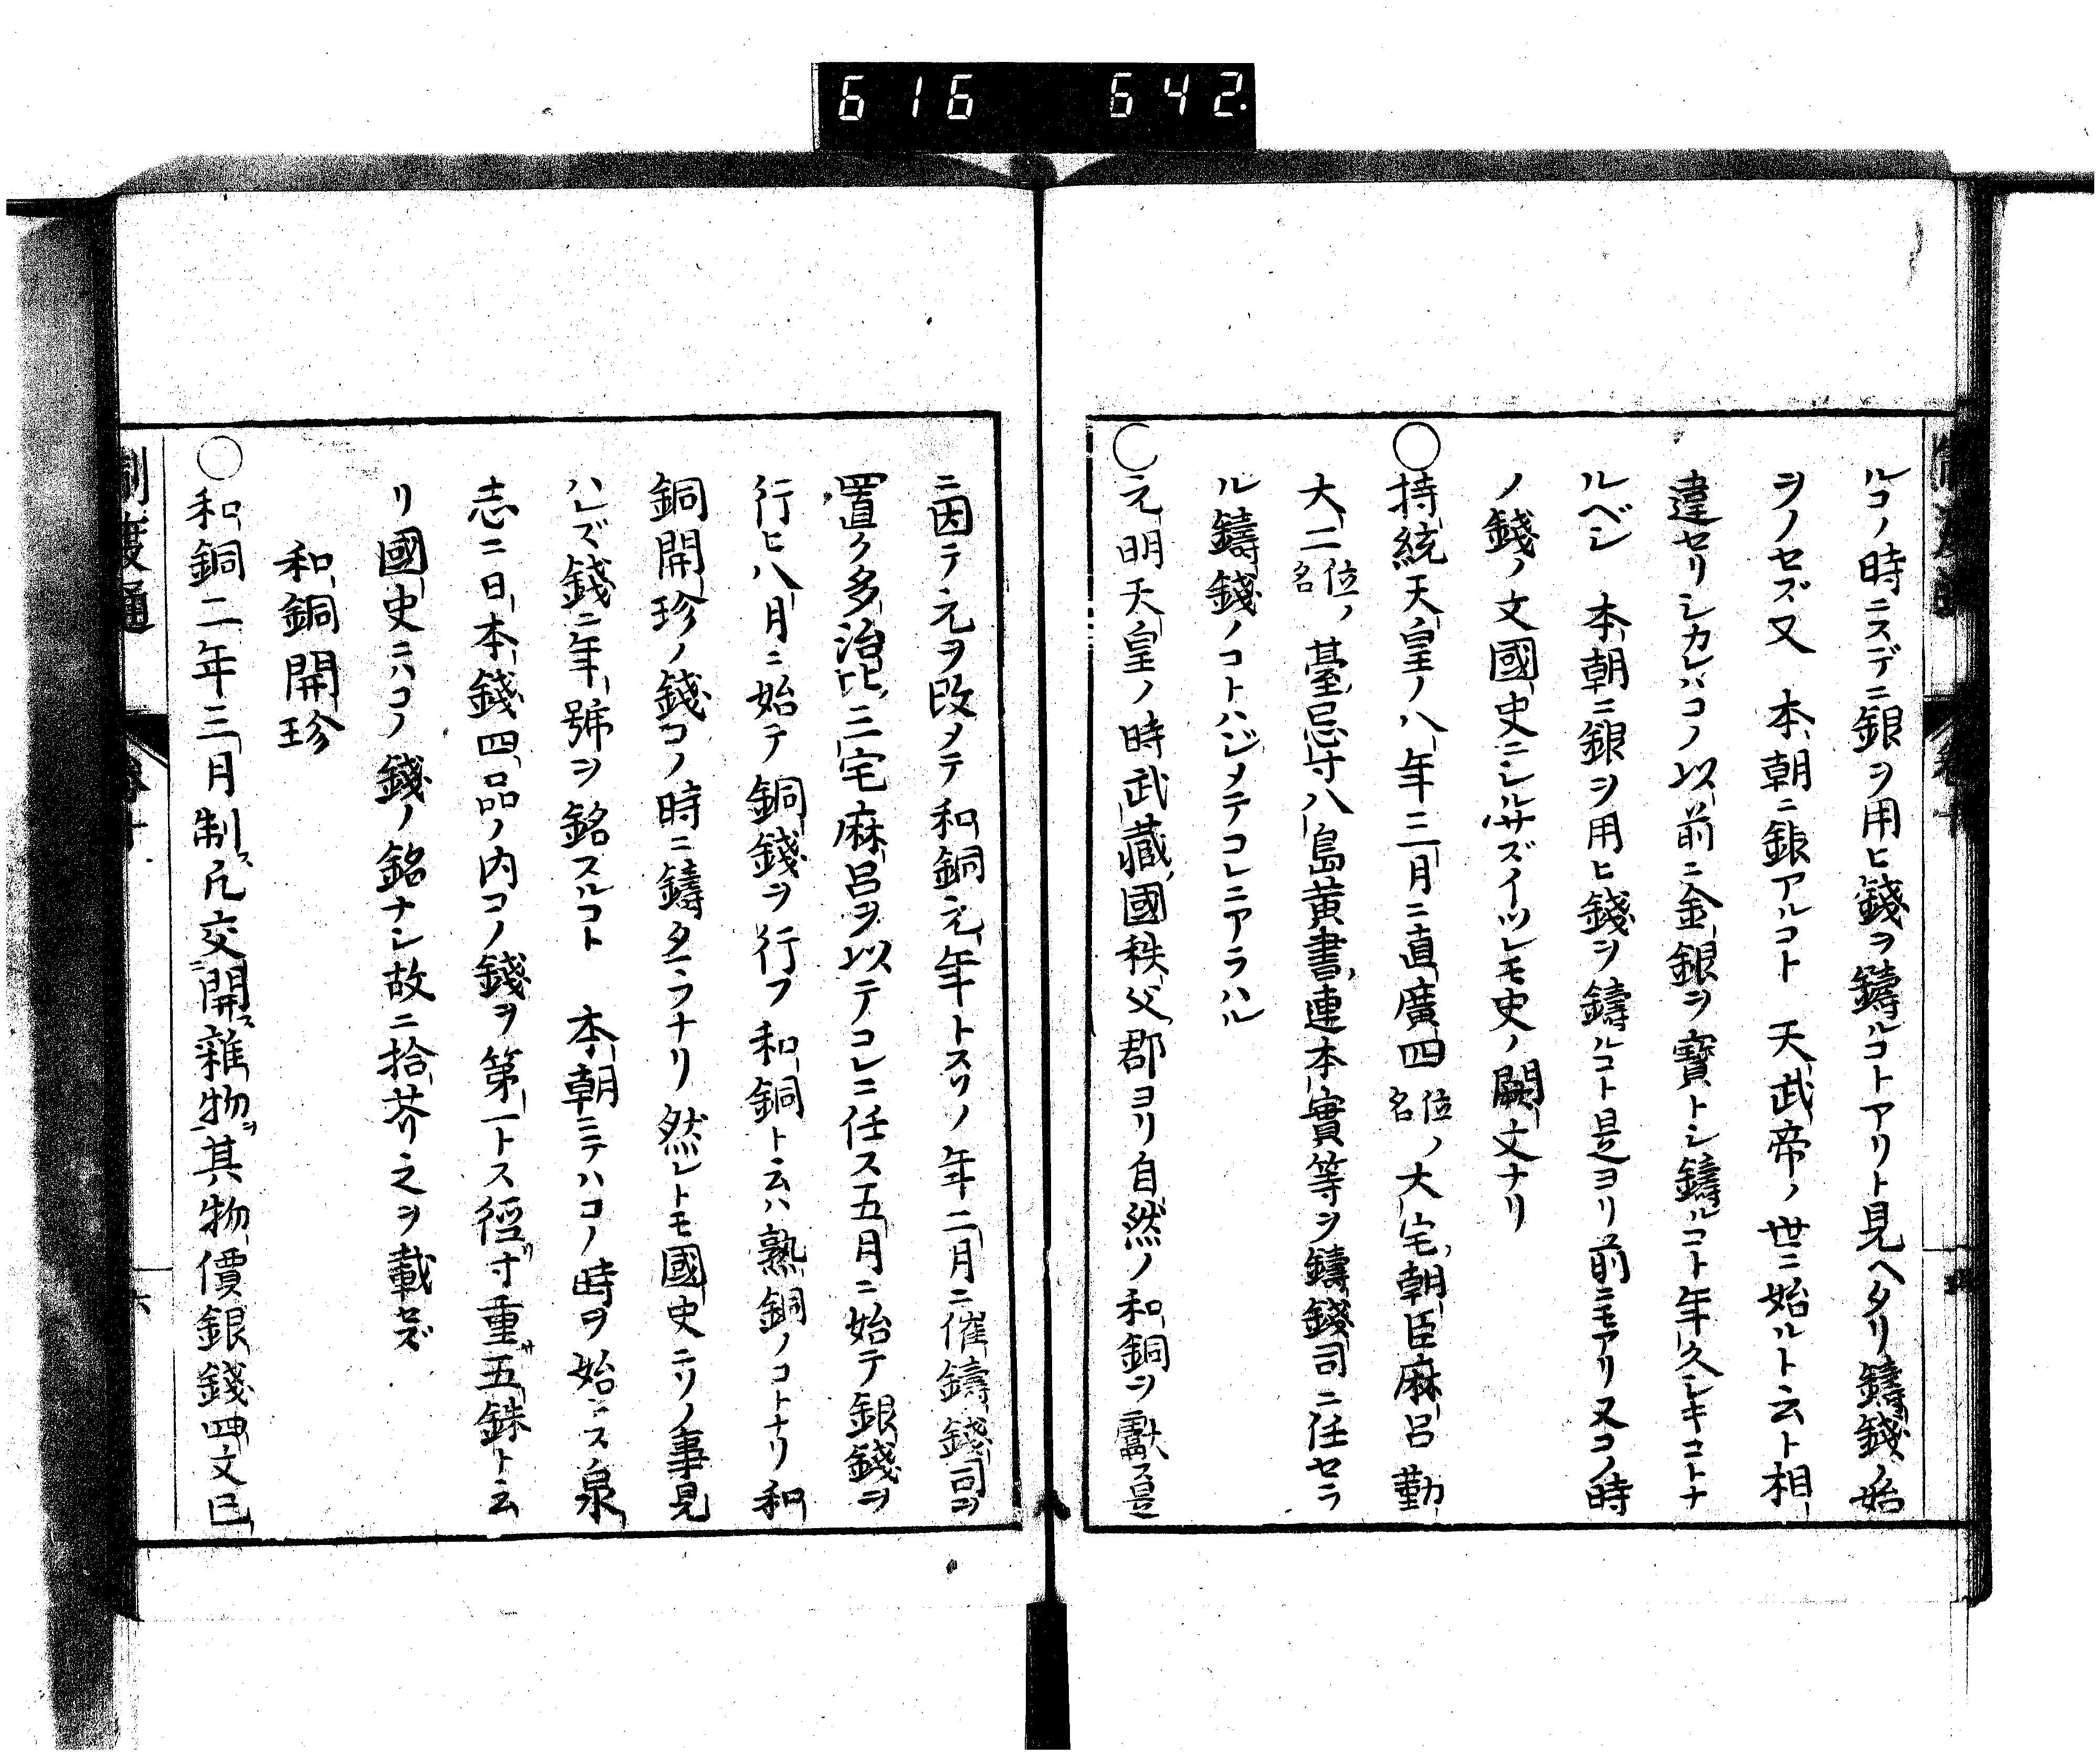 616 642.
ルコノ時ニスデニ銀ヲ用ヒ錢ヲ鑄ルコトアリト見ヘタリ鑄錢ノ始
ヲノセズ又 本朝ニ銀アルコト 天武帝ノ世ニ始ルト云ト相
違セリシカレハコノ以前ニ金銀ヲ寳トシ鑄ルコト年久シキコトナ
ルベシ 本朝ニ銀ヲ用ヒ錢ヲ鑄ルコト是ヨリ前ニモアリ又コノ時
ノ錢ノ文國史ニシルサズイツレモ史ノ闕文ナリ
○持統天皇ノ八年三月ニ直廣四位名ノ大宅朝臣麻呂勤
大二位名ノ臺忌寸八島黄書連本實等ヲ鑄錢司ニ任セラ
ル鑄錢ノコトハジメテコレニアラハル
○元明天皇ノ時武藏國秩父郡ヨリ自然ノ和銅ヲ獻ス是
ニ因テ元ヲ改メテ和銅元年トスソノ年二月ニ催鑄錢司ヲ
置ク多治比三宅麻呂ヲ以テコレニ任ス五月ニ始テ銀錢ヲ
行ヒ八月ニ始テ銅錢ヲ行フ和銅ト云ハ熟銅ノコトナリ和
銅開珍ノ錢コノ時ニ鑄タラナリ然レトモ國史ニソノ事見
ハレズ錢ニ年號ヲ銘スルコト 本朝ニテハコノ時ヲ始トス泉
志ニ日本錢四品ノ内コノ錢ヲ第一トス徑寸重五銖ト云
リ國史ニハコノ錢ノ銘ナシ故ニ拾芥ノ之ヲ載セズ
和銅開珍
○和銅二年三月制ス凡交開雜物ヲ其物價銀錢四文已
制度通 卷十 六